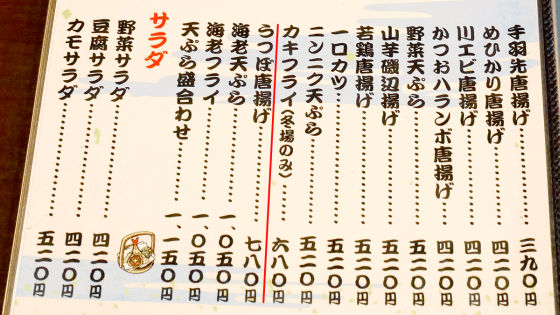 手羽先唐揚げ……………三九〇円
めひかり唐揚げ……………四二〇円
川エビ唐揚げ……………四二〇円
かつおハランボ唐揚げ……四二〇円
野菜天ぷら……………五二〇円
山芋磯辺揚げ……………五二〇円
若鶏唐揚げ……………五二〇円
一口カツ……………五二〇円
ニンニク天ぷら……………五二〇円
カキフライ(冬場のみ)……六八〇円
うつぼ唐揚げ……………七八〇円
海老天ぷら……………一、〇五〇円
海老フライ……………一、〇五〇円
天ぷら盛合わせ……………一、一五〇円
サラダ
野菜サラダ……………四二〇円
豆腐サラダ……………四二〇円
カモサラダ……………五二〇円